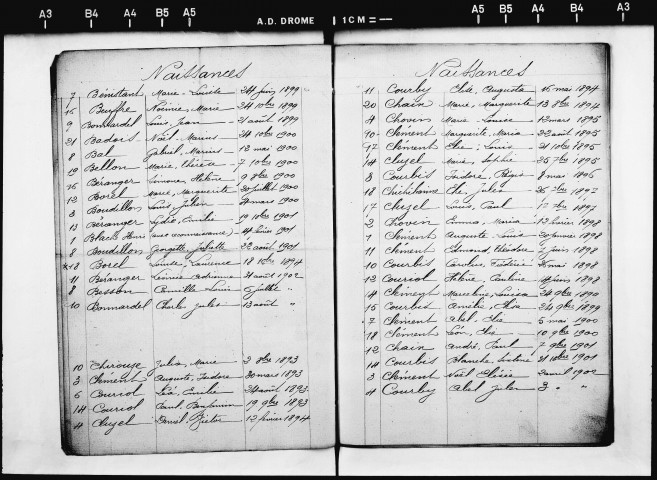 A3 B4 A4 B5 A5 A.D. DROME 1 CM A5 B5 A4 B4 A3
Naissances
7 Bénistant Marie-Louise 24 juin 1899
15 Buffre Noémie, Marie 24 10bre 1899
9 Bonnardel Louis, Jean 21 août 1899
21 Badois Noël, Marius 24 10bre 1900
8 Bal Gabriel, Marius 12 mai 1900
19 Bellon Marie, Thérèse 7 10bre 1900
16 Béranger Simone Hélène 9 8bre 1900
12 Borel Marie, Marguerite 20 juillet 1900
3 Boudillon Louis, Julien mars 1900
13 Béranger Lydie, Emilie 19 10bre 1901
1 Blache Henri (avec reconnaissance) 14 février 1901
8 Boudillon Georgette, Juliette 22 août 1901
*18 Borel Louise, Laurence 18 10bre 1894
11 Béranger Léonie Adrienne 21 août 1902
8 Besson Camille Louis juillet "
10 Bonnardel Charles Jules 13 août "
10 Chirouze Julia, Marie 2 8bre 1893
3 Clément Auguste, Isidore 30 mars 1893
6 Couriol Léa, Emilie août 1893
14 Couriol Paul, Benjamin 19 9bre 1893
4 Cluzel Daniel, Victor 12 février 1894
Naissances
11 Courby Elie, Augusta 16 mai 1894
20 Chaix Marie, Marguerite 13 8bre 1894
4 Chovin Marie, Louise 12 mars 1895
10 Clément Marguerite, Maria 22 août 1895
17 Clément Elie, Louis 21 10bre 1895
14 Cluzel Marie, Sophie 25 7bre 1895
8 Courbis Isidore, 8 mai 1896
18 Elie, Jules 26 7bre 1897
17 Cluzel Louis, Paul 17 7bre 1897
2 Chovin Emma, Maria 13 février 1898
7 Clément Auguste Louis 20 février 1898
11 Clément Edmond, Théodore 7 juin 1898
10 Courbis mai 1898
12 Couriol Hélène, Pauline juin 1898
14 Clément Marceline, Louisa 24 9bre 1890
15 Courbis Amélie, Elise 24 9bre 1899
7 Clément Abel, Elie 5 mai 1900
18 Clément Léon, Elie 10 9bre 1900
12 Chaix André, Paul 7 9bre 1901
14 Courbis Blanche, 21 10bre 1901
3 Clément Noël Elisée 2 avril 1902
4 Courby Abel Jules 3 " "